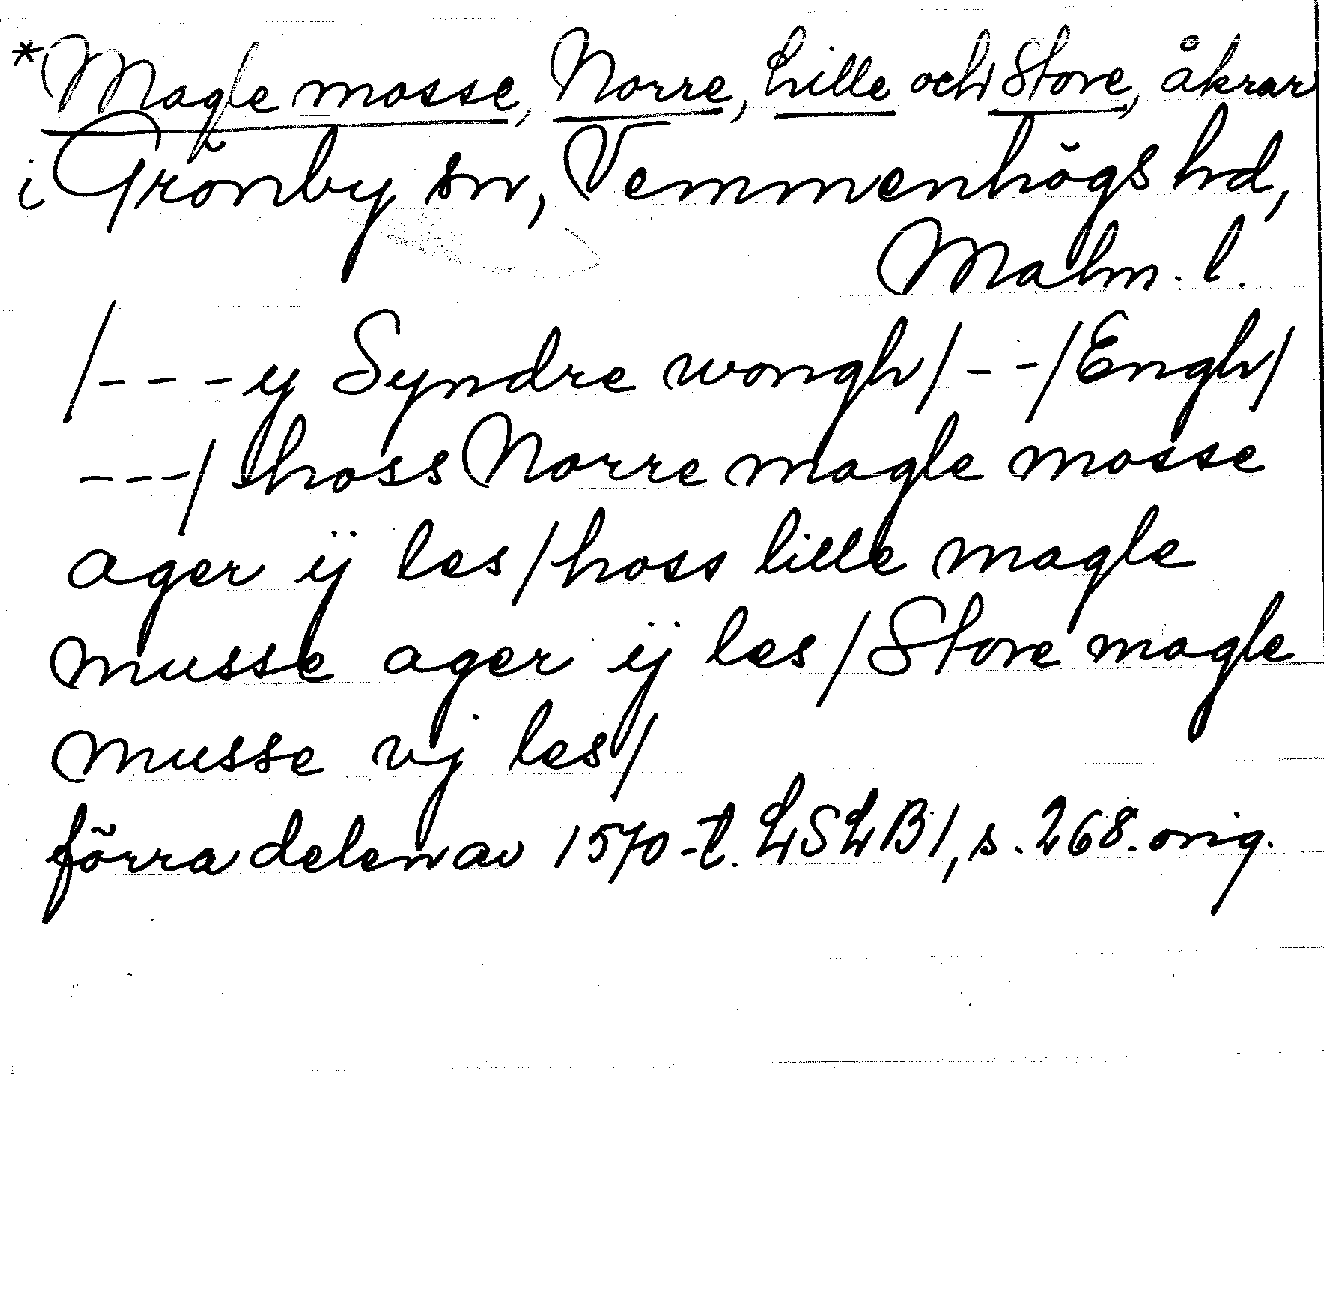 *Magle mosse, Norre, Lille och Store, åkrar
i Grönby sn, Vemmenhögs hd,
Malm. l.
/---y Syndre wongh/--/Engh/
---/ hoss Norre magle mosse
ager ij les/hoss lille magle
musse ager ij les/Store magle
musse vj les/
förra delen av 1570-t. LSLB1, s. 268. orig.